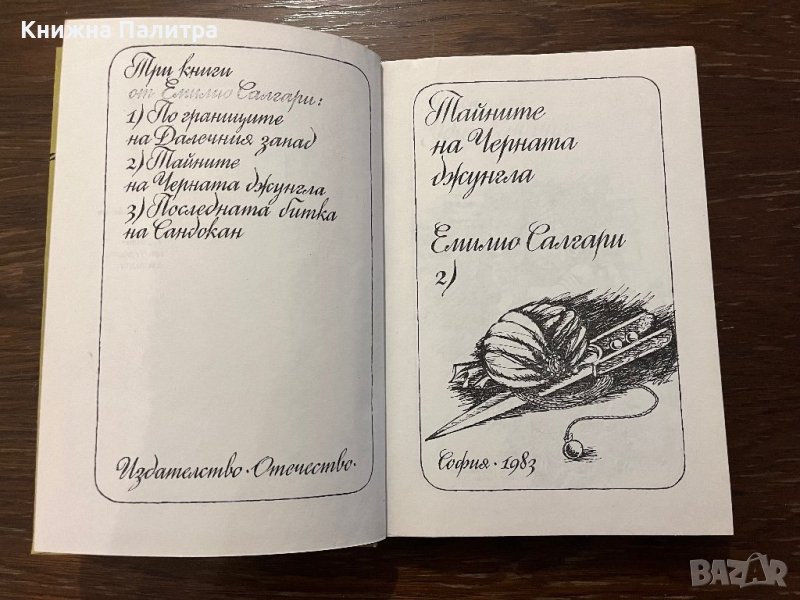 Книжна Палитра
Три книги
от Емилио Салгари:
1) По границите
на Далечния запад
2) Тайните
на Черната джунгла
3) Последната битка
на Сандокан
Издателство · Отечество ·
Тайните
на Черната
джунгла
Емилио Салгари
2)
София · 1983
BAZAR